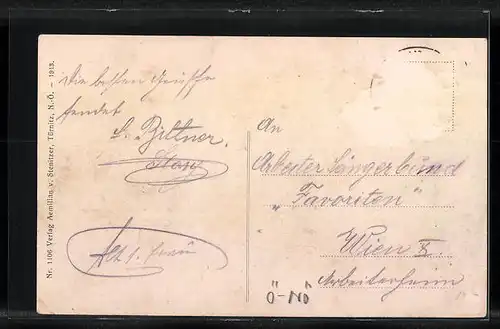 Nr. 1106 Verlag Aemilian v. Stemitzer, Türnitz, N.-Ö. – 1913.
Die besten Grüsse
sendet
Bittner.
An
Arbeiter Sängerbund
"Favoriten"
Wien X
Arbeiterheim
Frau
Ö-NÖ